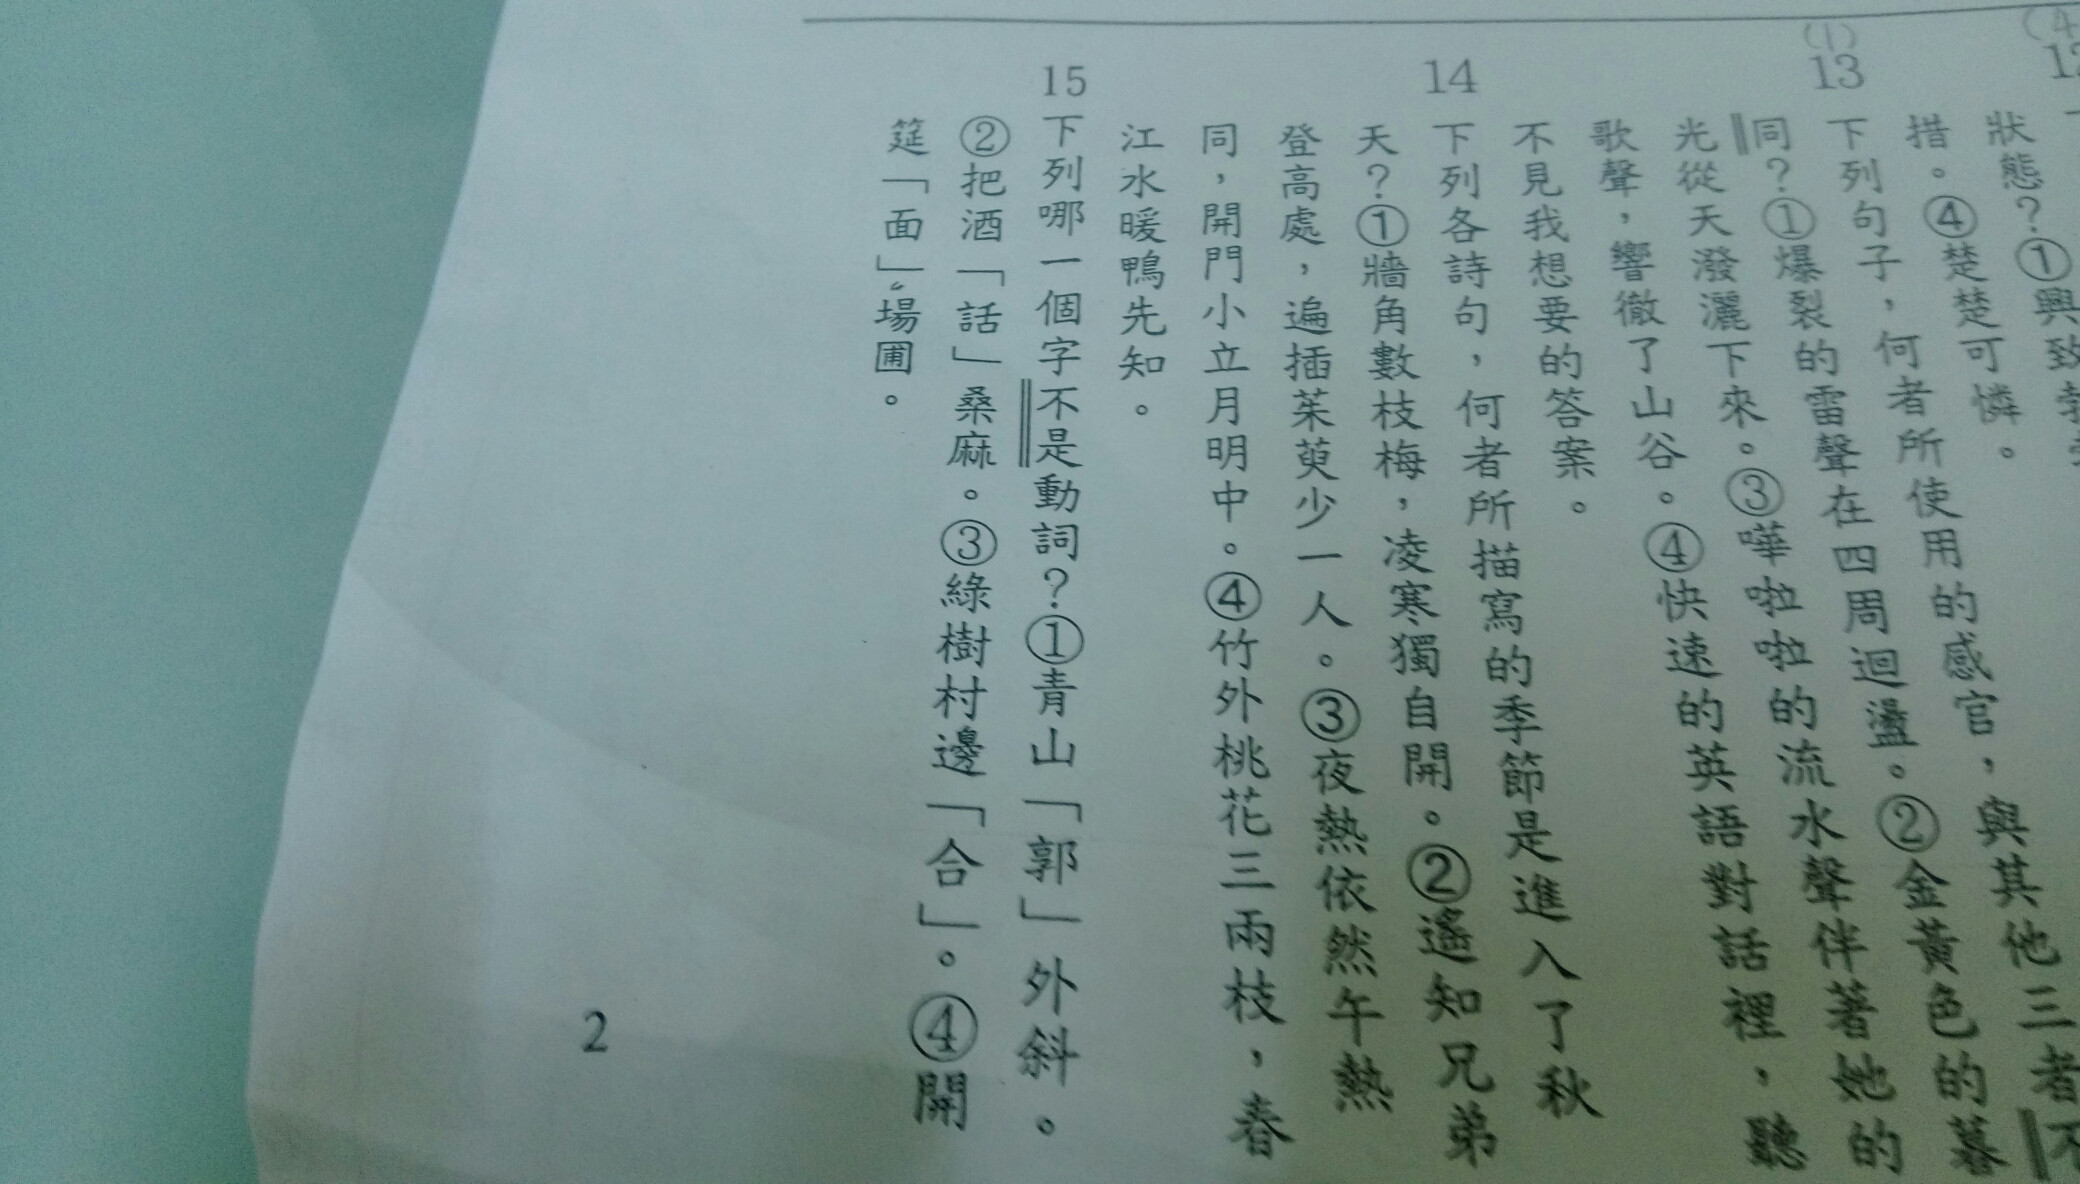 (4
12
狀態？①興致勃
措。④楚楚可憐。
(1)
13
下列句子，何者所使用的感官，與其他三者不
同？①爆裂的雷聲在四周迴盪。②金黃色的暮
光從天潑灑下來。③嘩啦啦的流水聲伴著她的
歌聲，響徹了山谷。④快速的英語對話裡，聽
不見我想要的答案。
14
下列各詩句，何者所描寫的季節是進入了秋
天？①牆角數枝梅，凌寒獨自開。②遙知兄弟
登高處，遍插茱萸少一人。③夜熱依然午熱
同，開門小立月明中。④竹外桃花三兩枝，春
江水暖鴨先知。
15
下列哪一個字不是動詞？①青山「郭」外斜。
②把酒「話」桑麻。③綠樹村邊「合」。④開
筵「面」場圃。
2